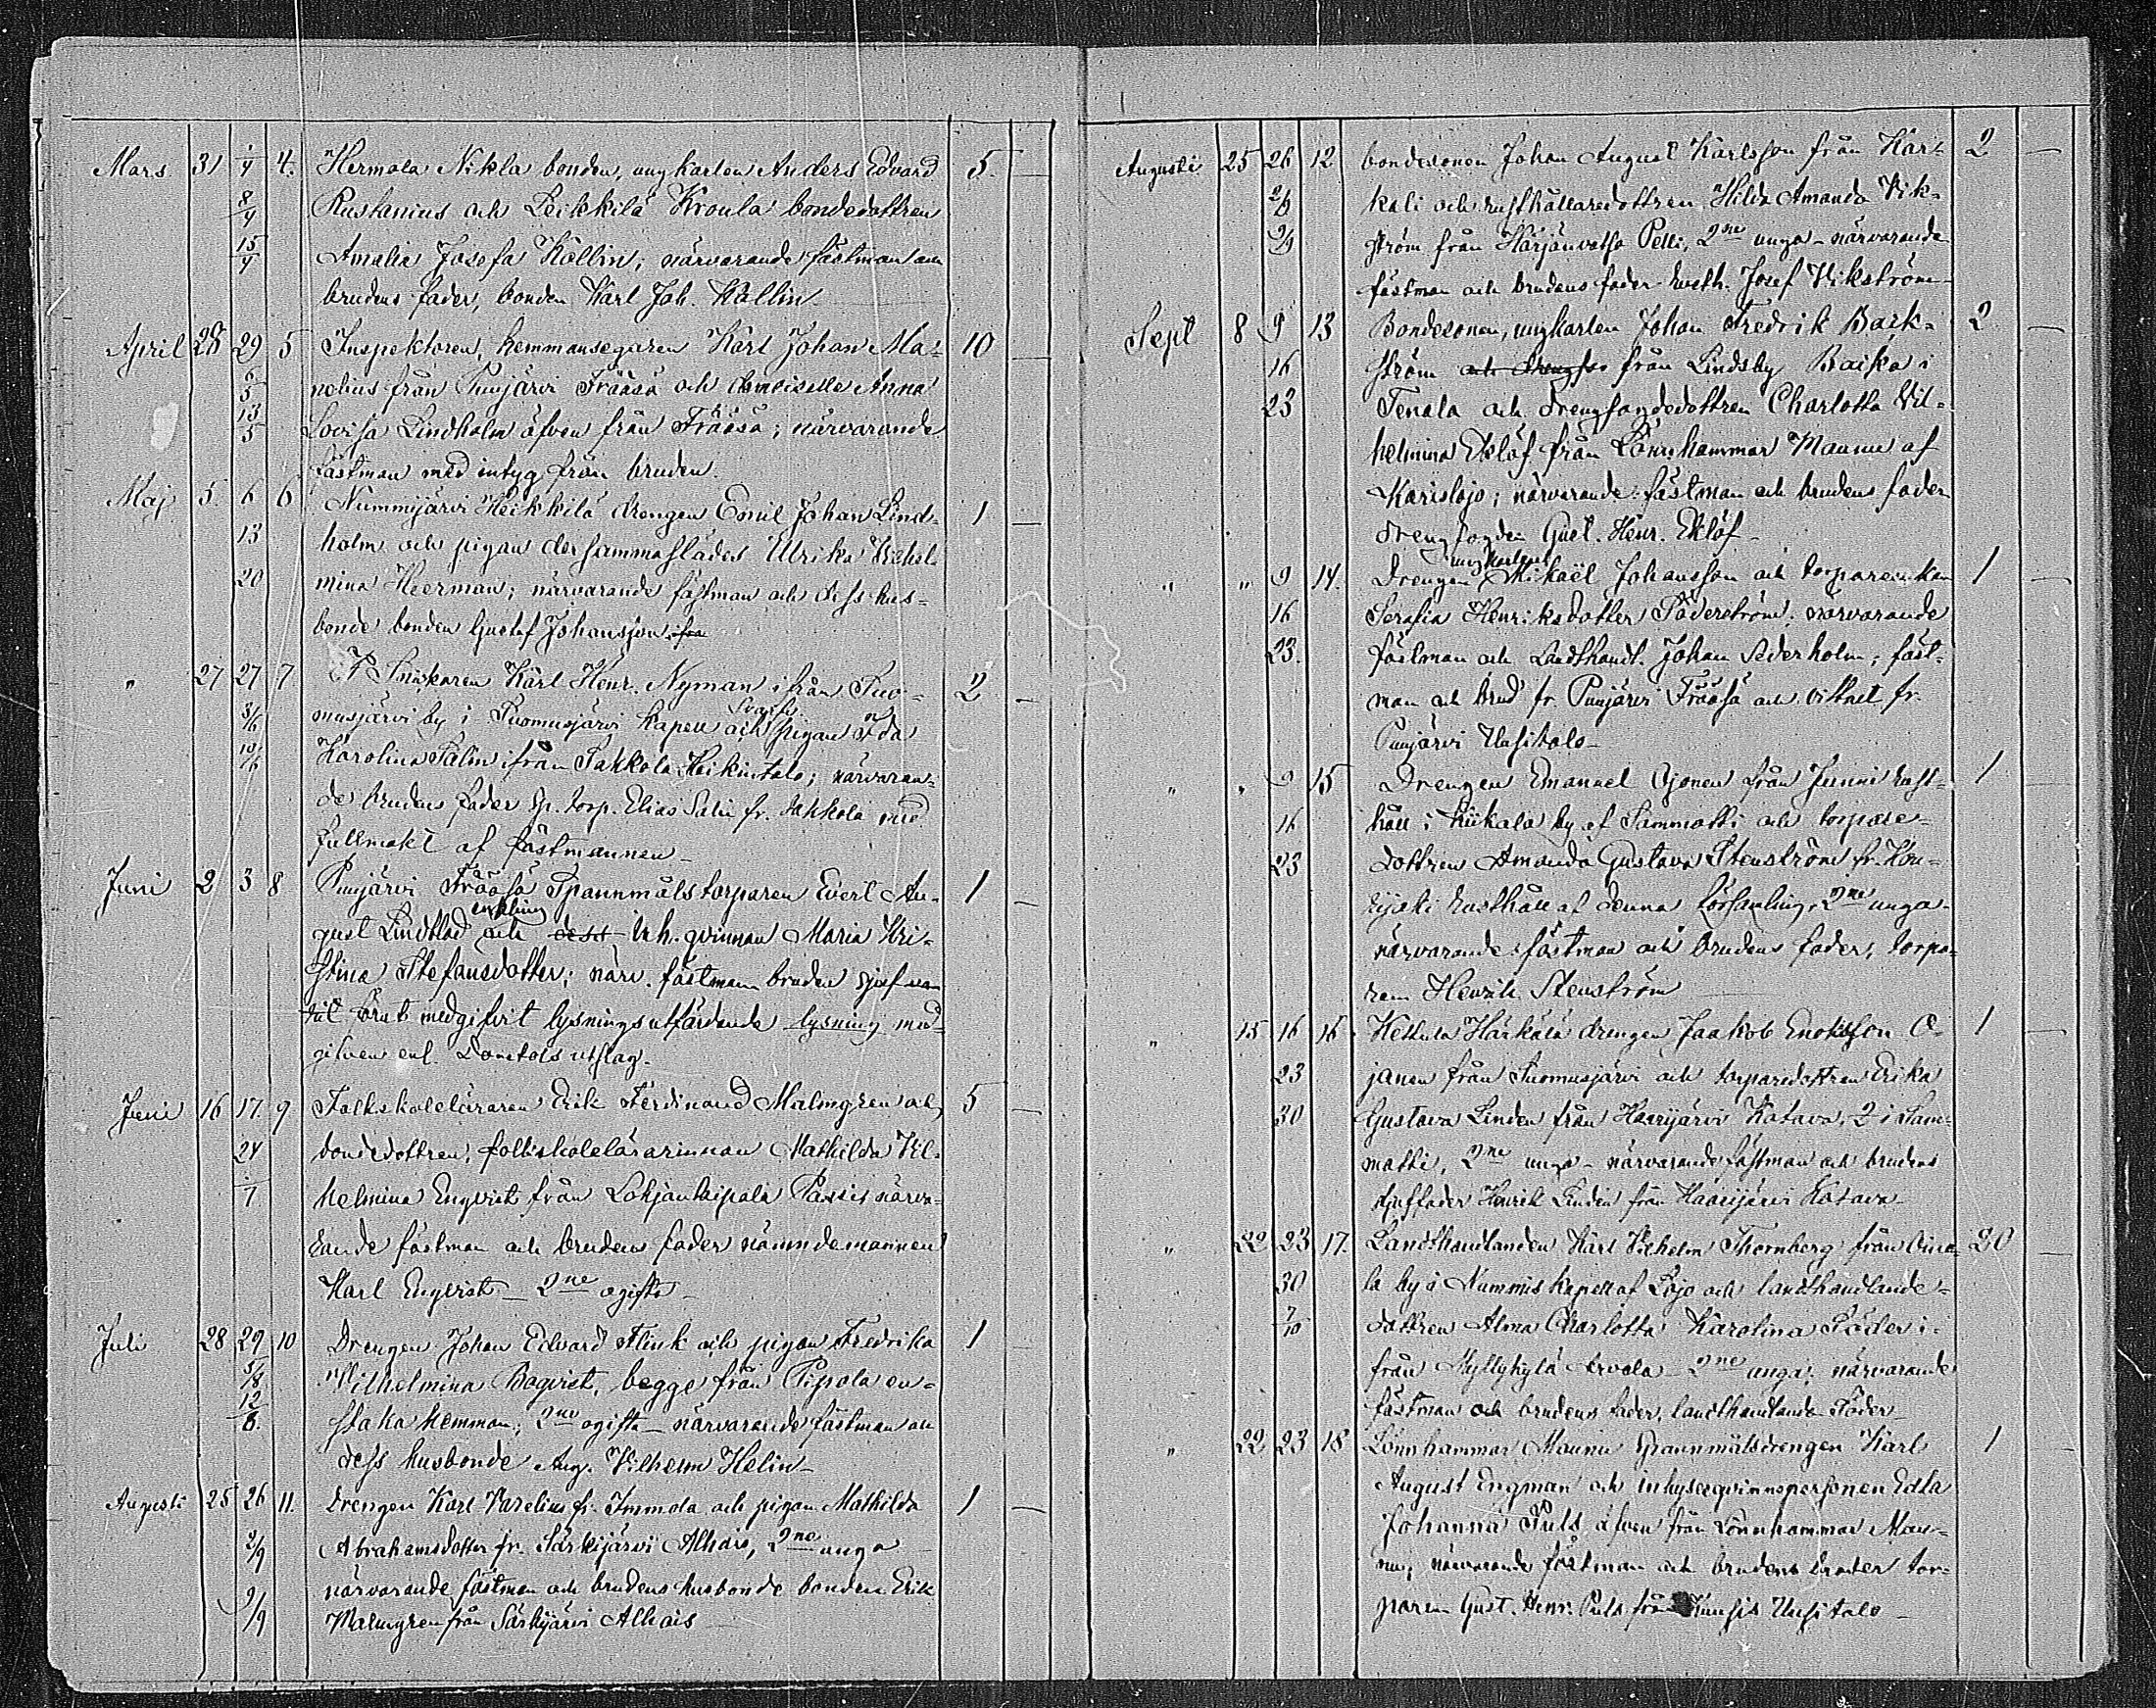 Mars 31 1/4 4. Hermola Nikla bonden, ungkarlen Anders Edvard 5. —
8/4 Rustanius och Leikkilä Kroula bondedottren
15/4 Amalia Josefa Källin; närvarande fästman och
brudens fader, bonden Karl Joh. Källin
April 28 29 5 Inspektoren, hemmansegaren Karl Johan Ma- 10 —
6/5 nelius från Puujärvi Fräåsä och demoiselle Anna
13/5 Lovisa Lindholm äfven från Fräåsä; närvarande
fästman med intyg från bruden.
Maj 5. 6 6 Nummijärvi Heikkilä drengen Emil Johan Lind- 1 —
13 holm och pigan dersammastädes Ulrika Vilhel-
20 mina Heerman; närvarande fästman och dess hus-
bonde bonden Gustaf Johansson
" 27 27 7 Snikaren Karl Henr. Nyman ifrån Suo- 2 —
3/6 musjärvi by i Suomusjärvi kapell och pigan Ida
10/6 Karolina Salin ifrån Sakkola Heikintalo; närvaran-
de brudens fader sp. torp. Elias Salin fr. Sakkola med
fullmakt af fästmannen
Juni 2 3 8 Puujärvi Fräåsä Spannmålstorparen Evert Au- 1 —
enkling
gust Lindblad och inh. qvinnan Maria Kri-
stina Stefansdotter; närv. fästman bruden sjelf
medgifvit lysnings utfärdande lysning med-
gifven enl. Domstols utslag.
Juni 16 17. 9 Folkskoleläraren Erik Ferdinand Malmgren och 5 —
24 bondedottren, folkskolelärarinnan Mathilda Vil-
1/7 helmina Engvist från Lohjantaipale Passis närva-
rande fästman och brudens fader nämndemannen
Karl Engvist — 2ne ogifta —
Juli 28 29 10 Drengen Johan Edvard Flink och pigan Fredrika 1 —
5/8 Vilhelmina Bogvist, begge från Pipola en-
12/8. staka hemman; 2ne ogifta — närvarande fästman och
dess husbonde Aug. Vilhelm Helin —
Augusti 25 26 11. Drengen Karl Varelius fr. Immola och pigan Mathilda 1 —
2/9 Abrahamsdotter fr. Särkijärvi Alhais, 2ne unga
närvarande fästman och brudens husbonde bonden Erik
9/9 Malmgren från Särkijärvi Alhais
Augusti 25 26 12 bondesonen Johan August Karlsson från Kar- 2 —
2/9 kali och rusthållaredottren Hilda Amanda Vik-
9/9 ström från Harjanvatsa Pelli, 2ne unga — närvarande
fästman och brudens fader rusth. Josef Vikström
Sept 8 9 13 Bondesonen, ungkarlen Johan Fredrik Back- 2 —
16 ström från Lindsby Backa i
23 Tenala och drengfogdedottren Charlotta Vil-
helmina Eklöf från Lönnhammar Maunu af
Karislojo; närvarande fästman och brudens fader
drengfogden Gust. Henr. Eklöf —
ungkarlen
" " 9 14. Drengen Mikaël Johansson och torpareenkan 1 —
16 Serafia Henriksdotter Söderström; närvarande
23. fästman och Landthandl. Johan Sederholm; fäst-
man och brud fr. Puujärvi Fräåsä och vittnet fr.
Puujärvi Uusitalo —
" " 9 15 Drengen Emanuel Ojonen från Junni rust- 1 —
16 håll i Kiikala by af Sammatti och torpare-
23 dottren Amanda Gustava Stenström fr.
rusthåll af denna församling, 2ne unga
närvarande: fästman och brudens fader, torpa-
ren Henrik Stenström
" 15 16 16. Kettula Härkälä drengen Jaakob Enoksson O- 1 —
23 janen från Suomusjärvi och torparedottren Erika
30 Gustava Linden från Haarijärvi Katava, 2 i Sam-
matti, 2ne unga — närvarande fästman och brudens
stjuffader Henrik Linden från Haarijärvi Katava
" 22 23 17. Landthandlanden Karl Vilhelm Thornberg från Oino- 20 —
30 la by i Nummis kapell af Lojo och landthandlande-
7/10 dottren Alma Charlotta Karolina Söder i-
från Myllykylä Arvola — 2ne unga; närvarande
fästman och brudens fader, landthandlande Söder —
" 22 23 18 Lönnhammar Maunu Spannmålsdrengen Karl 1 —
August Engman och inhysesqvinnspersonen Edla
Johanna Puls äfven från Lönnhammar Mau-
nu; närvarande fästman och brudens broder tor-
paren Gust. Henr. Puls från Kuusis Uusitalo —